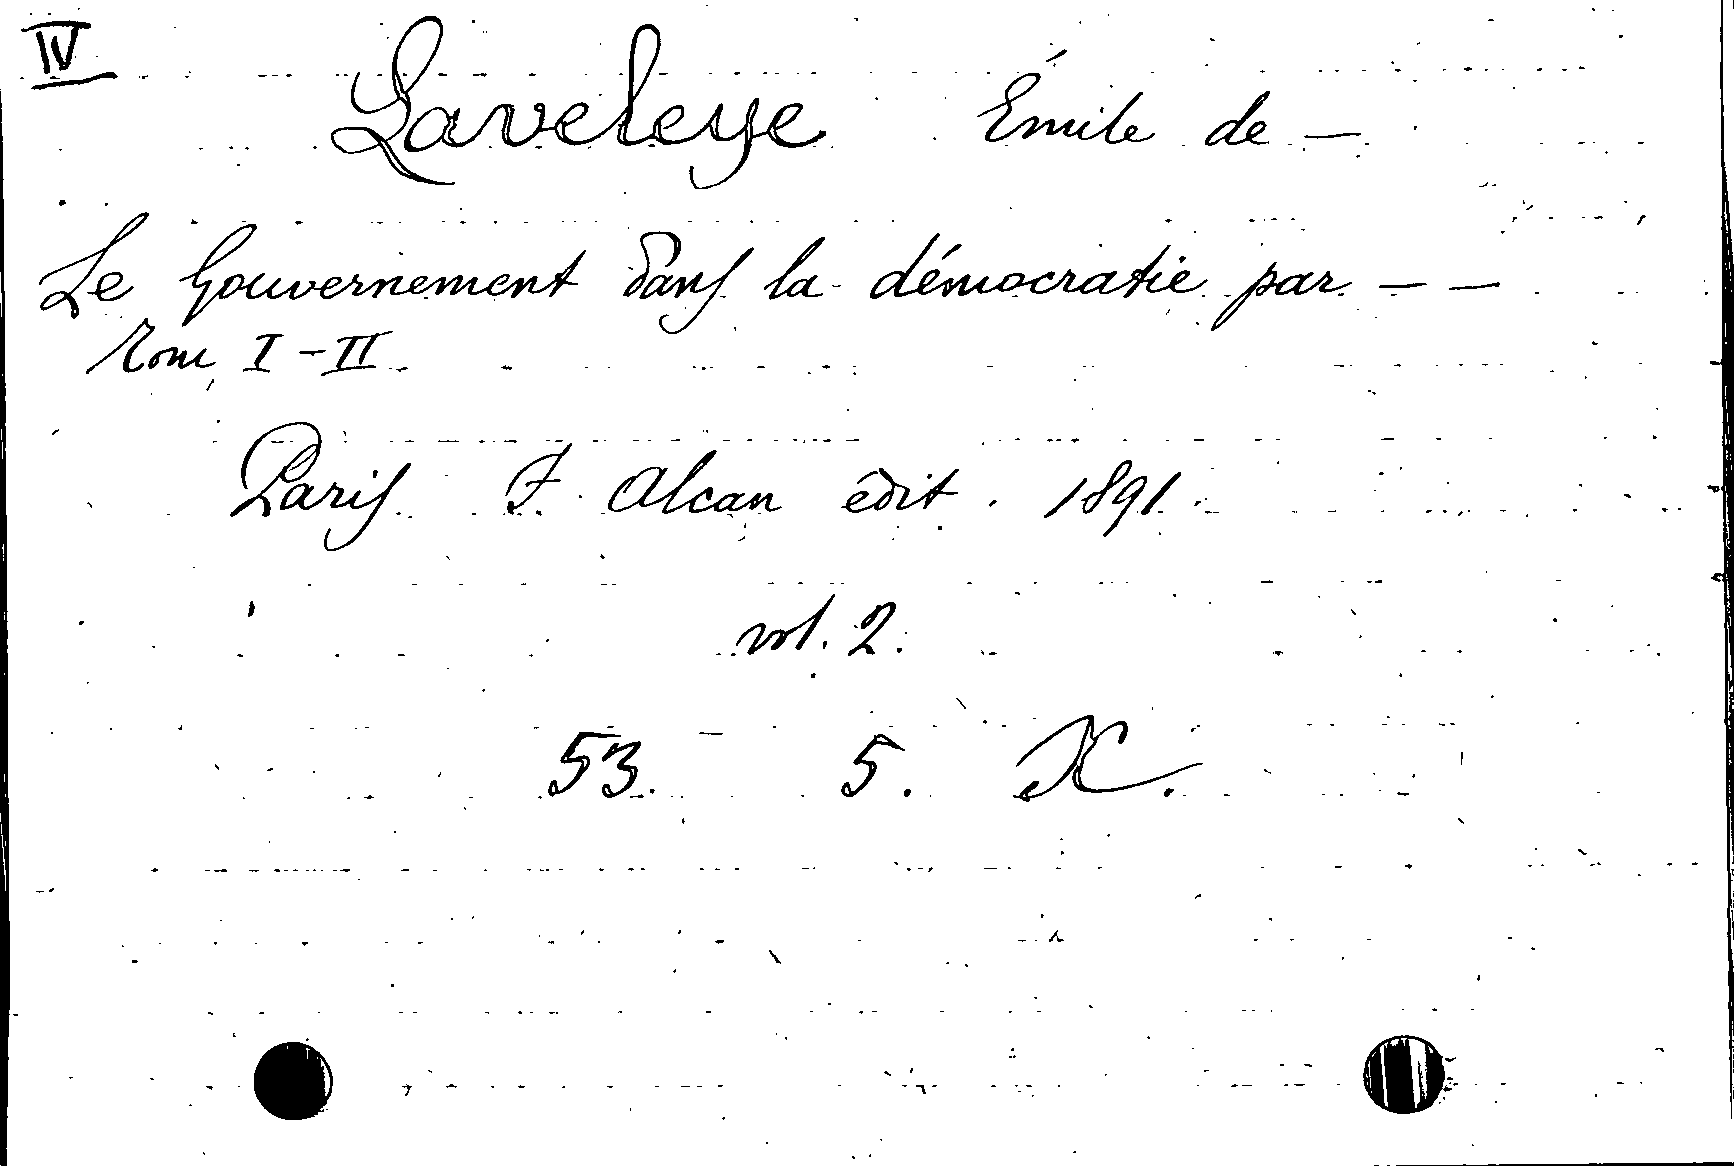 IV
Laveleye Émile de —
Le Gouvernement dans la démocratie par — —
Tom I - II
Paris F. Alcan édit. 1891.
vol. 2.
53. 5. X.